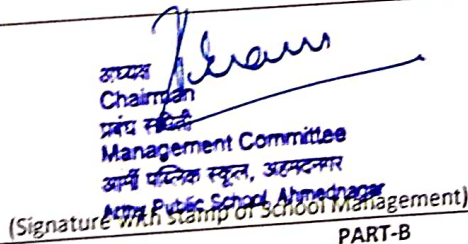 अध्यक्ष
Chairman
प्रबंध समिती
Management Committee
आर्मी पब्लिक स्कूल, अहमदनगर
Army Public School, Ahmednagar
(Signature with stamp of School Management)
PART-B